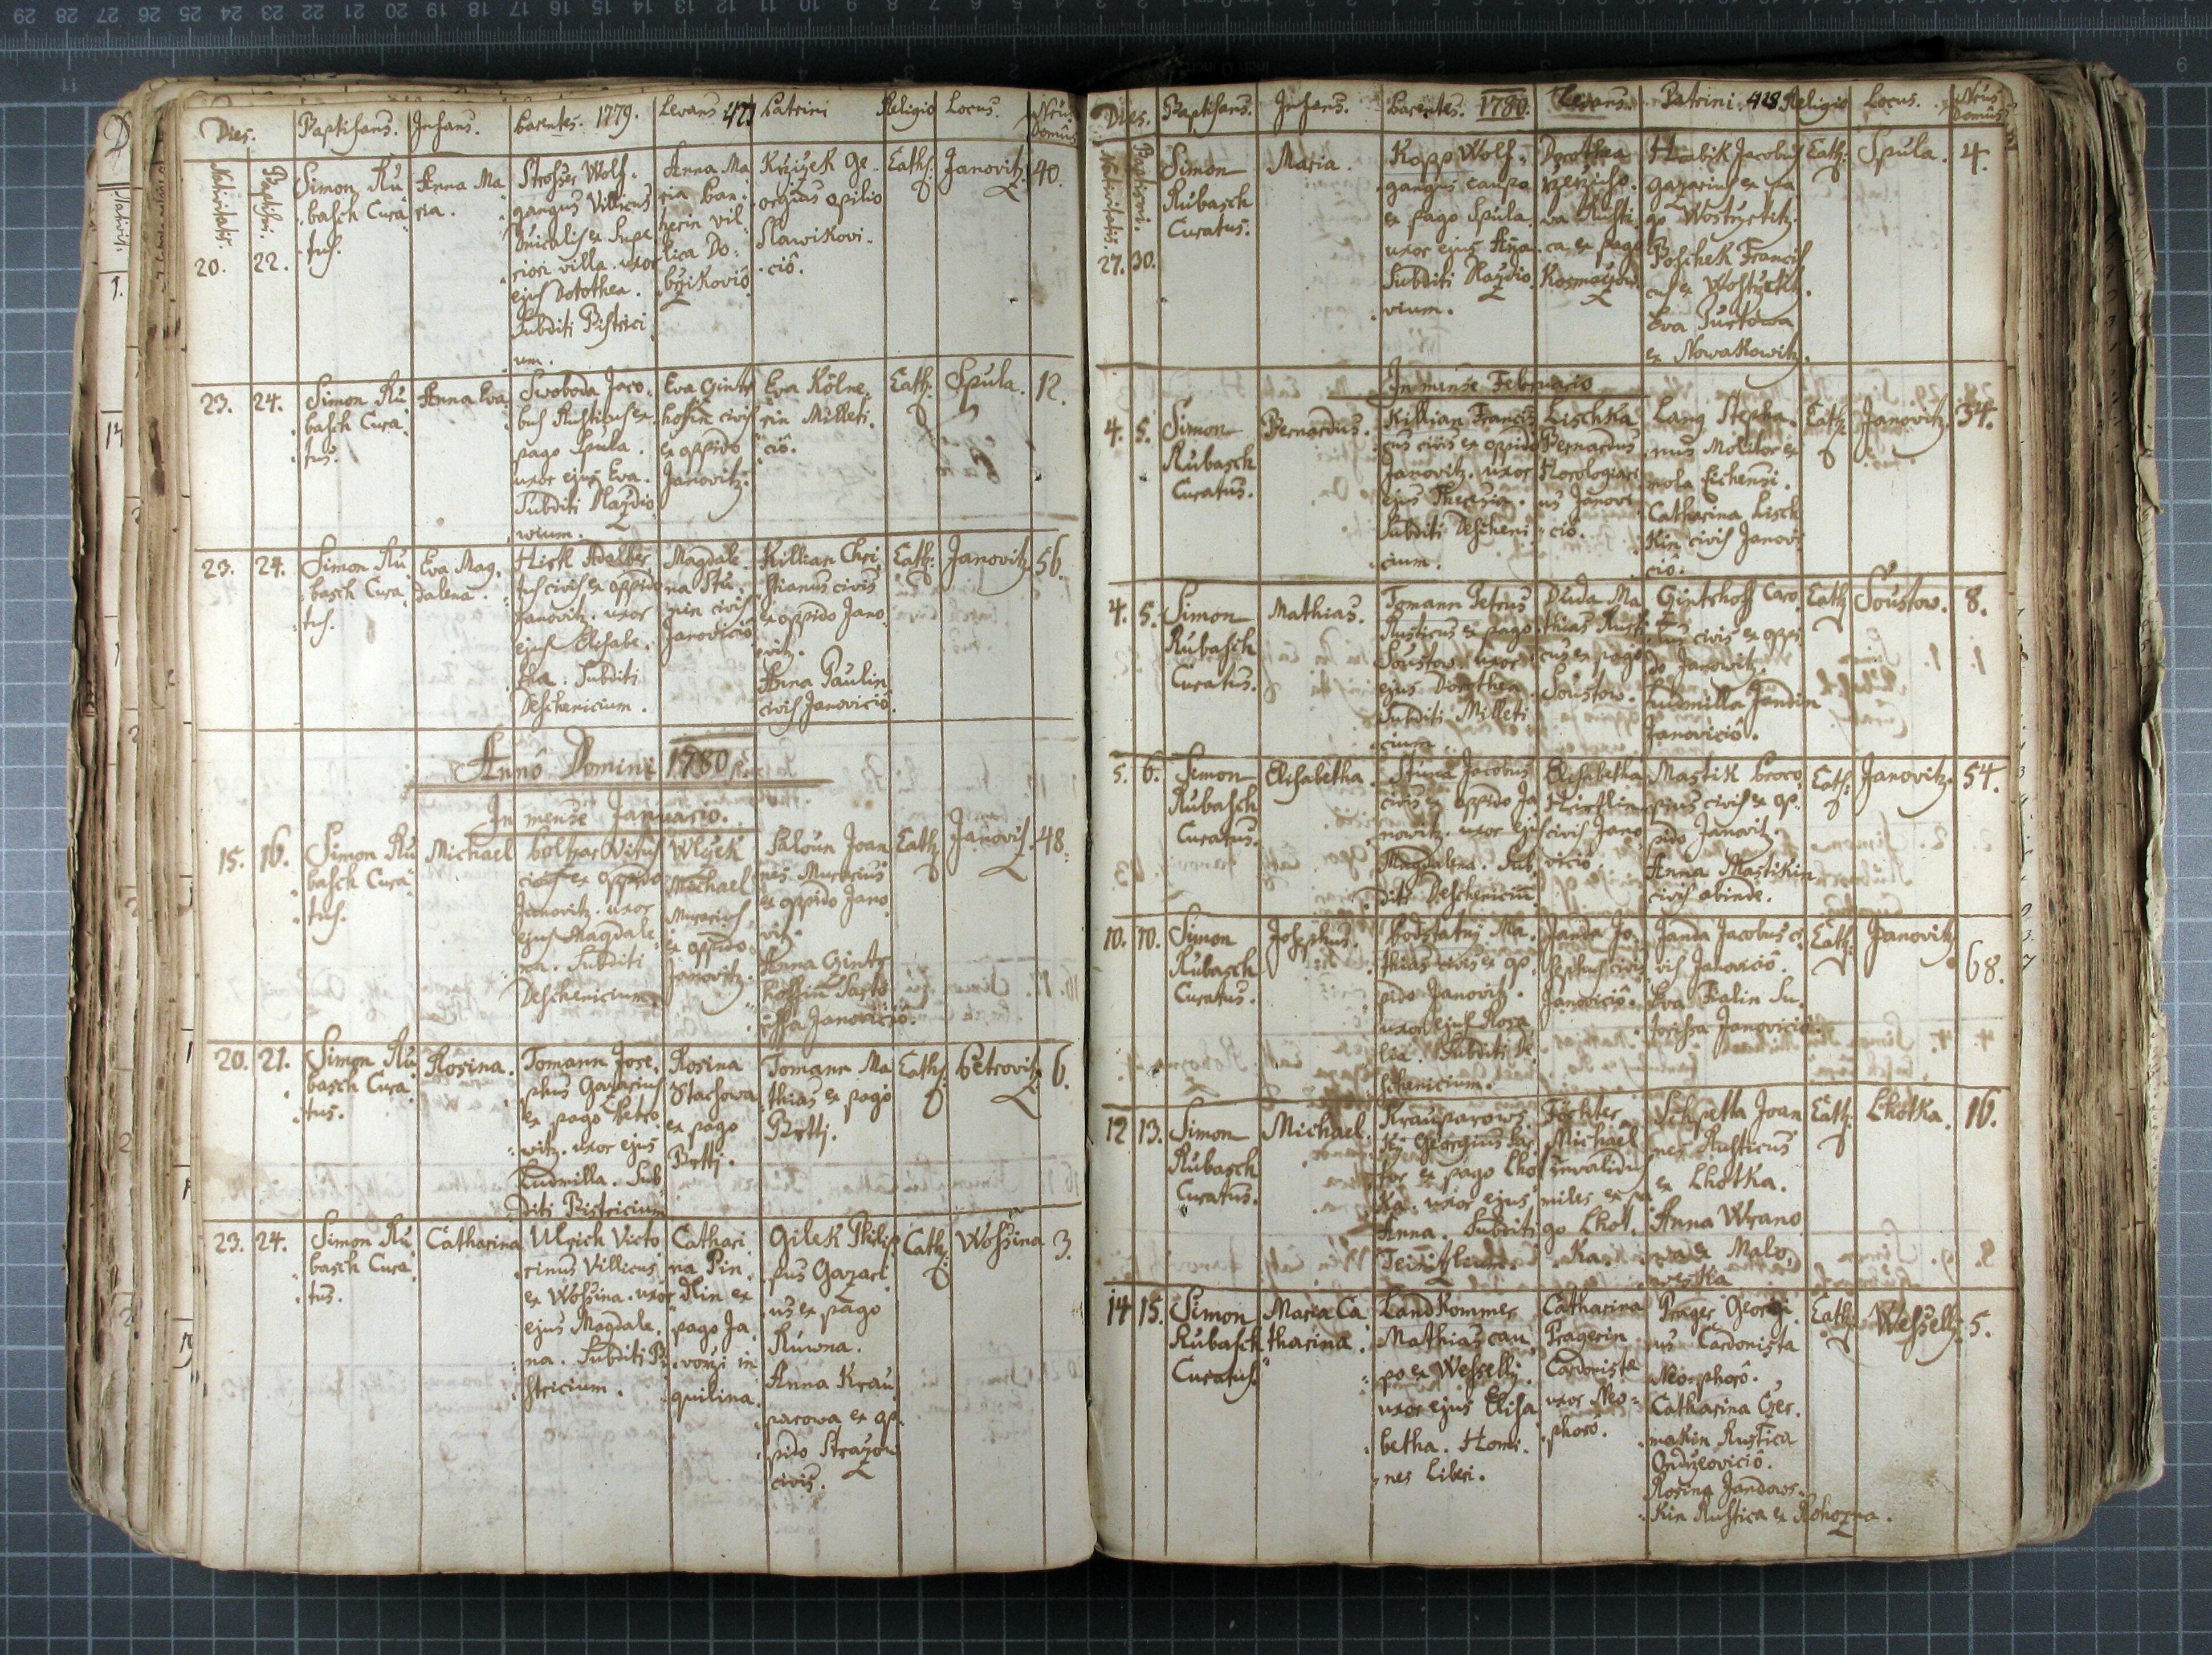 Dies. Baptisans. Infans. Parentes. 1779. Levans 427 Patrini Religio Locus. Nrus Domus
Nativitatis. Baptismi.
20. 22.
Simon Ru
basch Cura
tus.
Anna Ma
ria.
Strosser Wolf.
gangus Villicus
Ducalis ex Supe
riori villa. uxor
ejus Dorothea.
Subditi Bistrici
um.
Anna Ma
ria Pan
herin vil
lica Do
brzikovio
Krzizek Ge.
orgius opilio
Slawikovi
ciô.
Cath: Janovitz. 40.
23. 24.
Simon Ru
basch Cura
tus.
Anna Eva
Swoboda Jaco.
bus Rusticus ex
pago Spula.
uxor ejus Eva.
Subditi Bazdio
wium.
Eva Gints
hofin civis
ex oppido
Janovitz.
Eva Kölne.
rin Milleti.
ciô.
Cath: Spula. 12.
23. 24.
Simon Ru
basch Cura
tus.
Eva Mag.
dalena.
Hirtl Adalber
tus civis ex oppido
Janovitz. uxor
ejus Elisabe.
tha. Subditi
Deschenicium.
Magdale.
na Stu
nin civis
Janoviciô
Killian Chri
stianus civis
ex oppido Jano
vitz.
Anna Paulin
civis Janoviciô.
Cath: Janovitz 56.
Annô Domini 1780
In mense Januario.
15. 16.
Simon Ru
basch Cura
tus.
Michael
Poltzar Vitus
civis ex oppido
Janovitz. uxor
ejus Magdale
na. Subditi
Deschenicium.
Wlczek
Michael
Murarius
ex oppido
Janovitz.
Paloun Joan
nes. Murarius
ex oppido Jano
vitz.
Anna Gints
hoffin Sarto
rissa Janoviciô.
Cath: Janovitz. 48.
20. 21.
Simon Ru
basch Cura
tus.
Rosina.
Tomann Jose.
phus Gazarius
ex pago Petro
witz. uxor ejus
Ludmilla. Sub
diti Bistricium
Rosina
Stachowa
ex pago
Bettj.
Tomann Ma
thias ex pago
Bettj.
Cath: Petrovitz 6.
23. 24.
Simon Ru
basch Cura
tus.
Catharina
Ulrich Victo
rinus Villicus
ex Wossina. uxor
ejus Magdale.
na. Subditi Bi
stricium.
Cathari
na Pin
dlin ex
pago Ja
vorzi in
quilina
Gilek Philip
pus Gazari
us ex pago
Ruwna.
Anna Krau
parowa ex op.
pido Strazow
civis.
Cath: Wossina 3.
Dies. Baptisans. Infans. Parentes. 1780. Levans. Patrini. 428 Religio Locus. Nrus Domus
Nativitatis. Baptismi.
27. 30.
Simon
Rubasch
Curatus.
Maria.
Kopp Wolf.
gangus caupo
ex pago Spula.
uxor ejus Anna.
Subditi Bazdio
vium.
Dorothea
Rusti
ca ex pago
Hrabik Jacobus
gazarius ex pa
go Wostrzetitz.
Poschek Francis
cus ex Wostrzetitz.
Eva Turkowa
ex Nowakowitz.
Cath: Spula. 4.
In mense Februario
4. 5.
Simon
Rubasch
Curatus.
Bernardus.
Killian Francis
cus civis ex oppido
Janovitz. uxor
ejus Theresia.
Subditi Descheni
cium.
Lischka
Bernardus
Horologiari
us Janovi
ciô.
Lang Stepha
nus Molitor ex
mola Eichensi.
Catharina Lisch
kin civis Janovi
ciô.
Cath: Janovitz. 34.
4. 5.
Simon
Rubasch
Curatus.
Mathias.
Tomann Petrus
Rusticus ex pago
Soustow. uxor
ejus Dorothea.
Subditi Milleti
cium.
Duda Ma
thias Rusti
cus ex pago
Soustow.
Gintshoff Caro
lus civis ex oppi
do Janowitz.
Ludmilla Jandin
Janoviciô.
Cath: Soustow. 8.
5. 6.
Simon
Rubasch
Curatus.
Elisabetha.
Stuna Jacobus
civis ex oppido Ja
nowitz. uxor ejus
Magdalena. Sub
diti Deschenicium
Elisabetha
Hirtlin
civis Jano
viciô.
Mastik Proco
pius civis ex op.
pido Janovitz.
Anna Mastikin
civis abinde.
Cath: Janovitz. 54.
10. 10.
Simon
Rubasch
Curatus.
Josephus.
Podstatnj Ma.
thias civis ex op
pido Janovitz.
uxor ejus Rosa
lia. Subditi De
schenicium.
Janda Jo.
sephus civis
Janoviciô.
Janda Jacobus ci
vis Janoviciô.
Eva Fialin Su.
torissa Janoviciô.
Cath: Janovitz 68.
12 13.
Simon
Rubasch
Curatus.
Michael.
Krauparows.
kj Georgius Sar
tor ex pago Lhot
ka. uxor ejus
Anna. Subditi
Teinitzlium
Fochter
Michael
Invalidus
miles ex pa
go Lhot.
ka.
Schpetta Joan
nes Rusticus
ex Lhotka.
Anna Wrano
wa ex Malo
weska
Cath: Lhotka. 16.
14 15.
Simon
Rubasch
Curatus.
Maria Ca
tharina.
Landkommer
Mathias cau
po ex Wesselly.
uxor ejus Elisa
betha. Homi.
nes Liberi.
Catharina
Pragerin
Cardonista
uxor Neo
phorô.
Prager Georgi
us Cardonista
Neophorô.
Catharina Czer.
makin Rustica
Ondrzeoviciô.
Rosina Jandows
kin Rustica ex Rohozna.
Cath: Wesselly. 5.